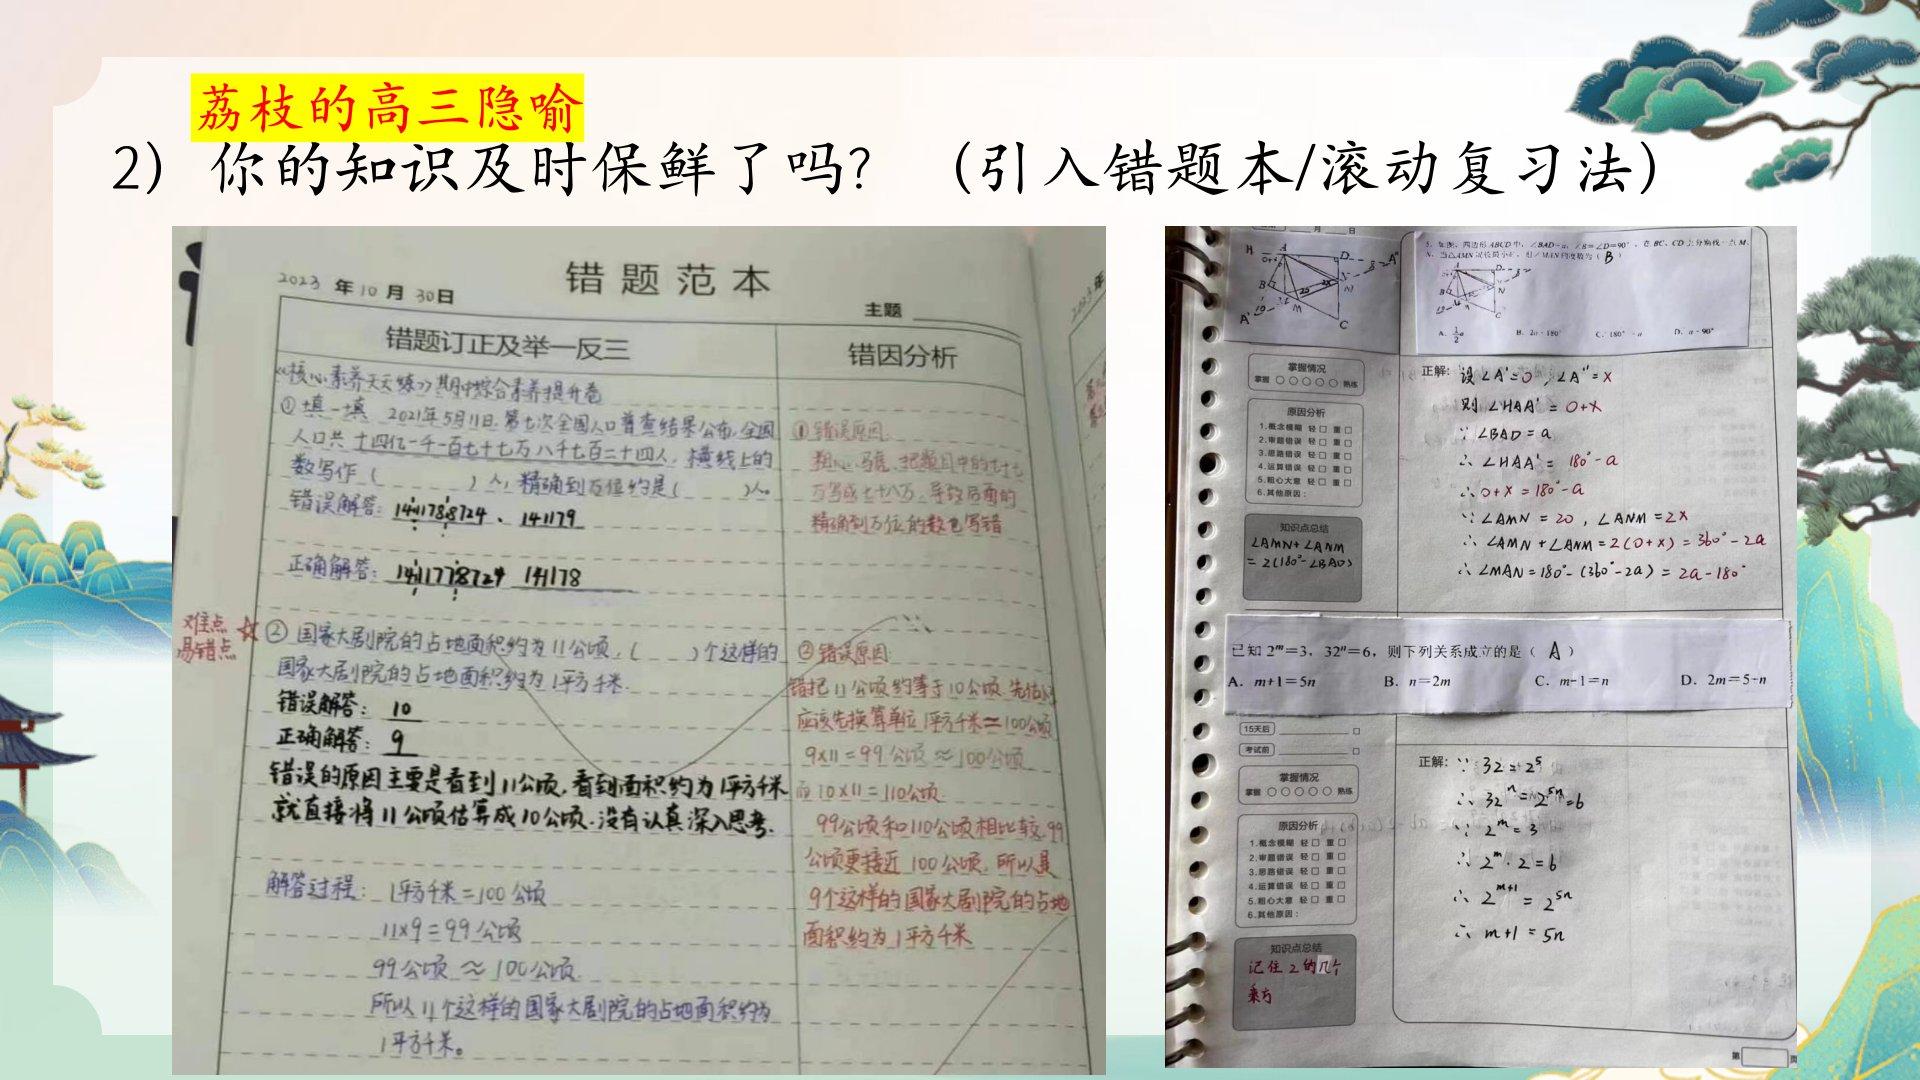 荔枝的高三隐喻
2）你的知识及时保鲜了吗？（引入错题本/滚动复习法）
2023 年 10 月 30日
错题范本
主题
错题订正及举一反三
错因分析
《核心素养天天练》期中综合素养提升卷
①填一填 2021年5月11日,第七次全国人口普查结果公布,全国
人口共十四亿一千一百七十七万八千七百二十四人,横线上的
数写作（ ）人,精确到万位约是（ ）人。
错误解答：1411788724、141179
正确解答：1411778724 141178
难点
易错点
②国家大剧院的占地面积约为11公顷,（ ）个这样的
国家大剧院的占地面积约为1平方千米.
错误解答：10
正确解答：9
错误的原因主要是看到11公顷,看到面积约为1平方千米
就直接将11公顷估算成10公顷.没有认真深入思考.
解答过程：1平方千米=100公顷
11×9=99公顷
99公顷≈100公顷.
所以11个这样的国家大剧院的占地面积约为
1平方千米。
①错误原因:
粗心,马虎,把题目中的七十七
万写成七十八万,导致后面的
精确到万位的数也写错
②错误原因:
错把11公顷约等于10公顷.
应该先换算单位1平方千米=100公顷
9×11=99公顷≈100公顷
而10×11=110公顷.
99公顷和110公顷相比较,99
公顷更接近100公顷,所以是
9个这样的国家大剧院的占地
面积约为1平方千米
月 日
5. 如图，四边形ABCD中，∠BAD=α，∠B=∠D=90°，在BC、CD上分别找一点M、
N，当△AMN周长最小时，则∠MAN的度数为（B）
A. 1/2α B. 2α-180° C. 180°-α D. α-90°
掌握情况
掌握 ○○○○○ 熟练
原因分析
1.概念模糊 轻□ 重□
2.审题错误 轻□ 重□
3.思路错误 轻□ 重□
4.运算错误 轻□ 重□
5.粗心大意 轻□ 重□
6.其他原因：
知识点总结
∠AMN+∠ANM
=2(180°-∠BAD)
正解：设∠A'=0,∠A''=x
则∠HAA'=0+x
∵∠BAD=a
∴∠HAA'=180°-a
∴0+x=180°-a
∵∠AMN=20,∠ANM=2x
∴∠AMN+∠ANM=2(0+x)=360°-2a
∴∠MAN=180°-(360°-2a)=2a-180°
已知2ᵐ=3，32ⁿ=6，则下列关系成立的是（A）
A. m+1=5n B. n=2m C. m-1=n D. 2m=5-n
15天后 □
考试前 □
掌握情况
掌握 ○○○○○ 熟练
原因分析
1.概念模糊 轻□ 重□
2.审题错误 轻□ 重□
3.思路错误 轻□ 重□
4.运算错误 轻□ 重□
5.粗心大意 轻□ 重□
6.其他原因：
知识点总结
记住2的几个
乘方
正解：∵32=2⁵
∴32ⁿ=2⁵ⁿ=6
∵2ᵐ=3
∴2ᵐ·2=6
∴2ᵐ⁺¹=2⁵ⁿ
∴m+1=5n
第 页